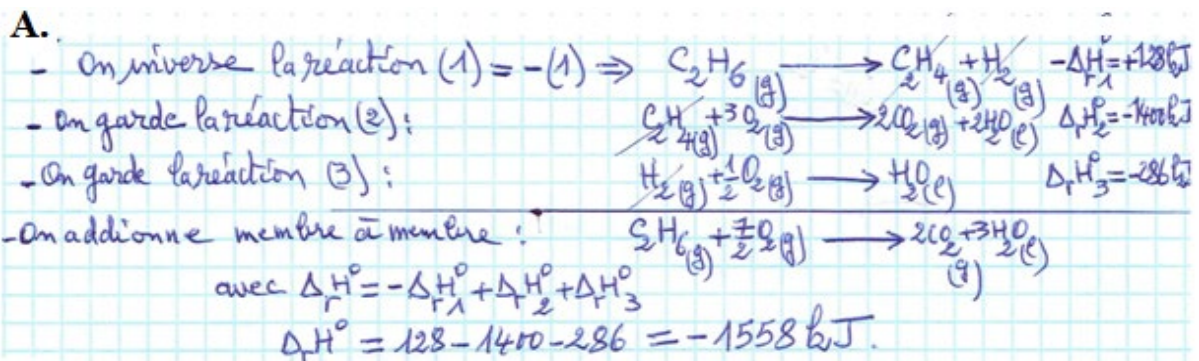 A.
- On inverse la réaction (1) = -(1) ⇒ C₂H₆(g) ⟶ C₂H₄(g) + H₂(g) -ΔrH°₁ = +128kJ
- On garde la réaction (2) : C₂H₄(g) + 3O₂(g) ⟶ 2CO₂(g) + 2H₂O(l) ΔrH°₂ = -1400kJ
- On garde la réaction (3) : H₂(g) + 1/2 O₂(g) ⟶ H₂O(l) ΔrH°₃ = -286kJ
- On addionne membre à membre : C₂H₆(g) + 7/2 O₂(g) ⟶ 2CO₂(g) + 3H₂O(l)
avec ΔrH° = -ΔrH°₁ + ΔrH°₂ + ΔrH°₃
ΔrH° = 128 - 1400 - 286 = -1558 kJ.